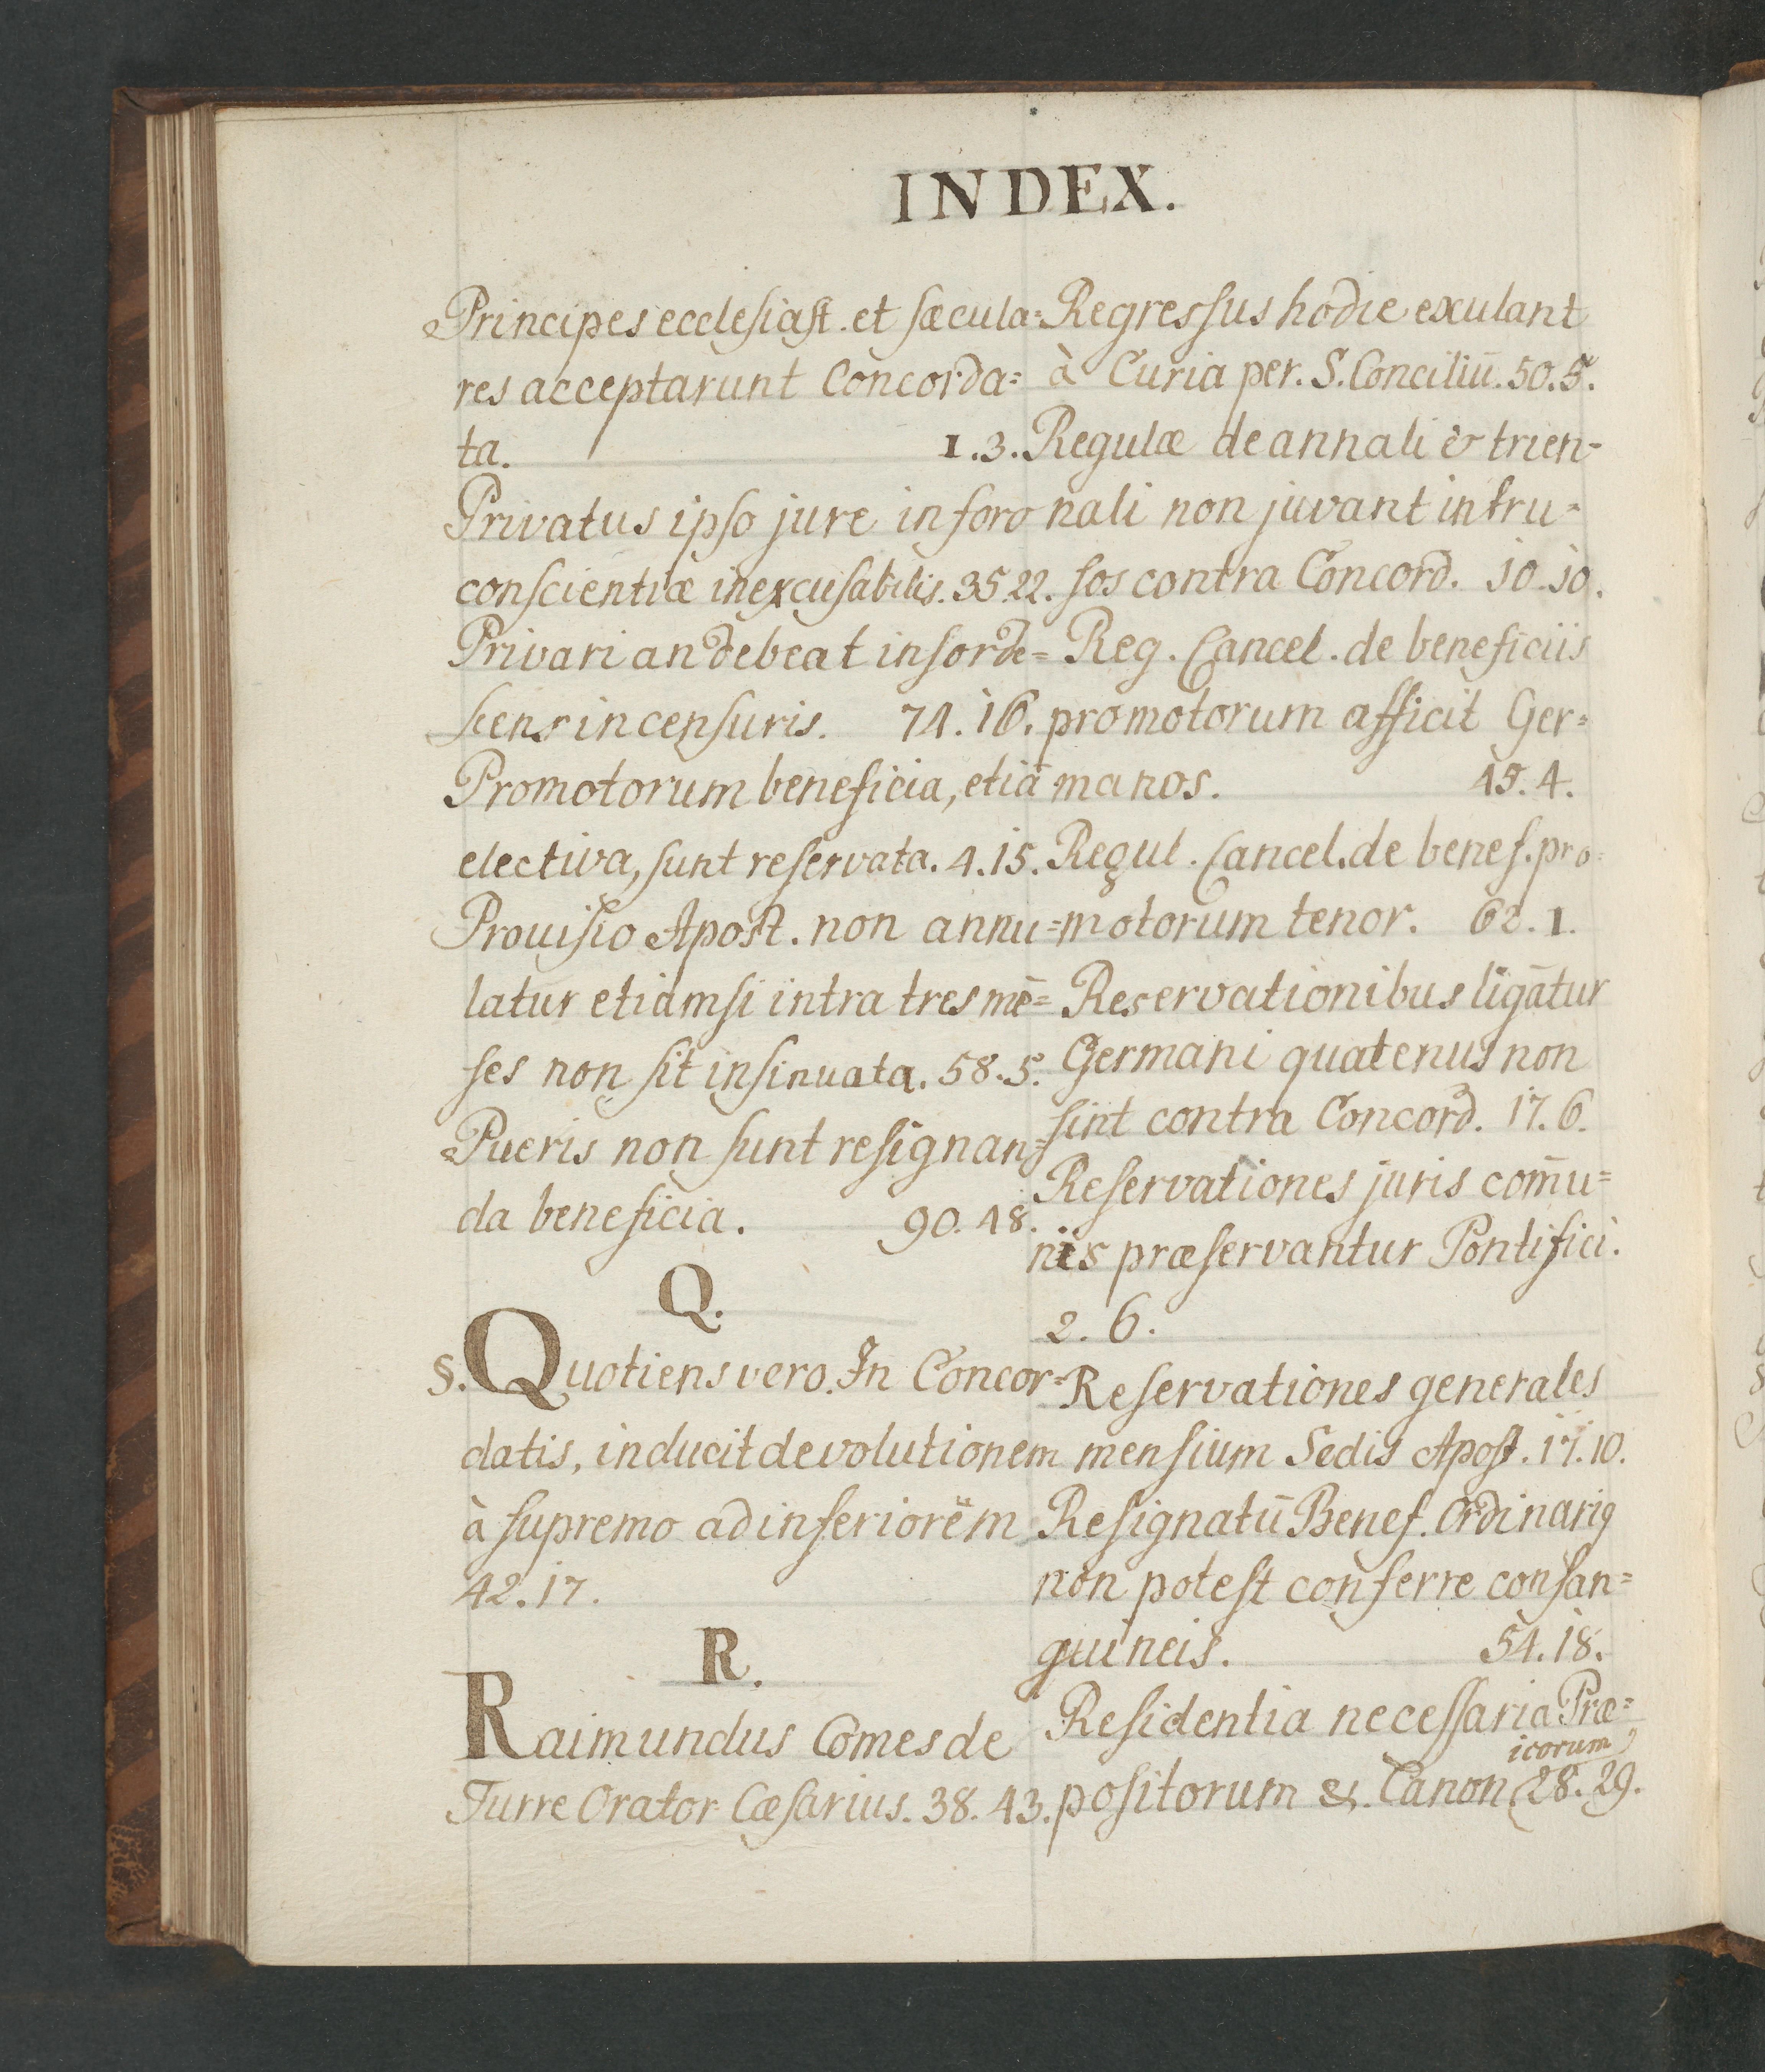 INDEX.
Principes ecclesiast. et sæcula=
res acceptarunt Concorda=
ta. 1.3.
Privatus ipso jure in foro
conscientiæ inexcusabilis. 35.22.
Privari an debeat insorde=
scens in censuris. 74.16.
Promotorum beneficia, etiā
electiva, sunt reservata. 4.15.
Provisio Apost. non annu=
latur etiamsi intra tres mē=
ses non sit insinuata. 58.5.
Pueris non sunt resignan=
da beneficia. 90.18.
Q.
§. Quotiens vero. In Concor=
datis, inducit devolutionem
à supremo ad inferiorem
42.17.
R.
Raimundus Comes de
Turre Orator Cæsarius. 38.43.
Regressus hodie exulant
à Curia per. S. Conciliū. 50.5.
Regulæ de annali & trien-
nali non juvant intru=
sos contra Concord. 10.10.
Reg. Cancel. de beneficiis
promotorum afficit Ger=
manos. 45.4.
Regul. Cancel. de benef. pro=
motorum tenor. 62.1.
Reservationibus ligātur
Germani quatenus non
sint contra Concord. 17.6.
Reservationes juris com̄u=
nis præservantur Pontifici.
2.6.
Reservationes generales
mensium Sedis Apost. 17.10.
Resignatū Benef. Ordinariꝯ
non potest conferre consan=
guineis. 54.18.
Residentia necessaria Præ=
positorum &. Canonicorum 28.29.